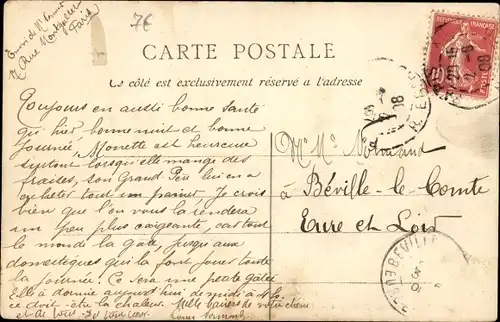 Envoi de Mr
7 Rue Montyon
Paris
7€
CARTE POSTALE
Ce côté est exclusivement réservé à l'adresse
REPUBLIQUE FRANÇAISE
10
POSTES
Toujours en aussi bonne santé
qui hier bonne nuit et bonne
journée. Monette est heureuse
surtout lorsqu'elle mange des
fraises, son Grand Père lui en a
acheter tout un panier. Je crois
bien que l'on vous la rendera
un peu plus exigeante, car tout
le monde la gate, jusqu'aux
domestiques qui la font jouer toute
la journée. Ce sera une petite gâtée
Elle a dormie aujourd'hui de midi à 4 h.
ce doit être la chaleur. Mille baisers de votre chérie
et de tous
Mr Mme Normand
à Béville-le-Comte
Eure et Loir
BEVILLE